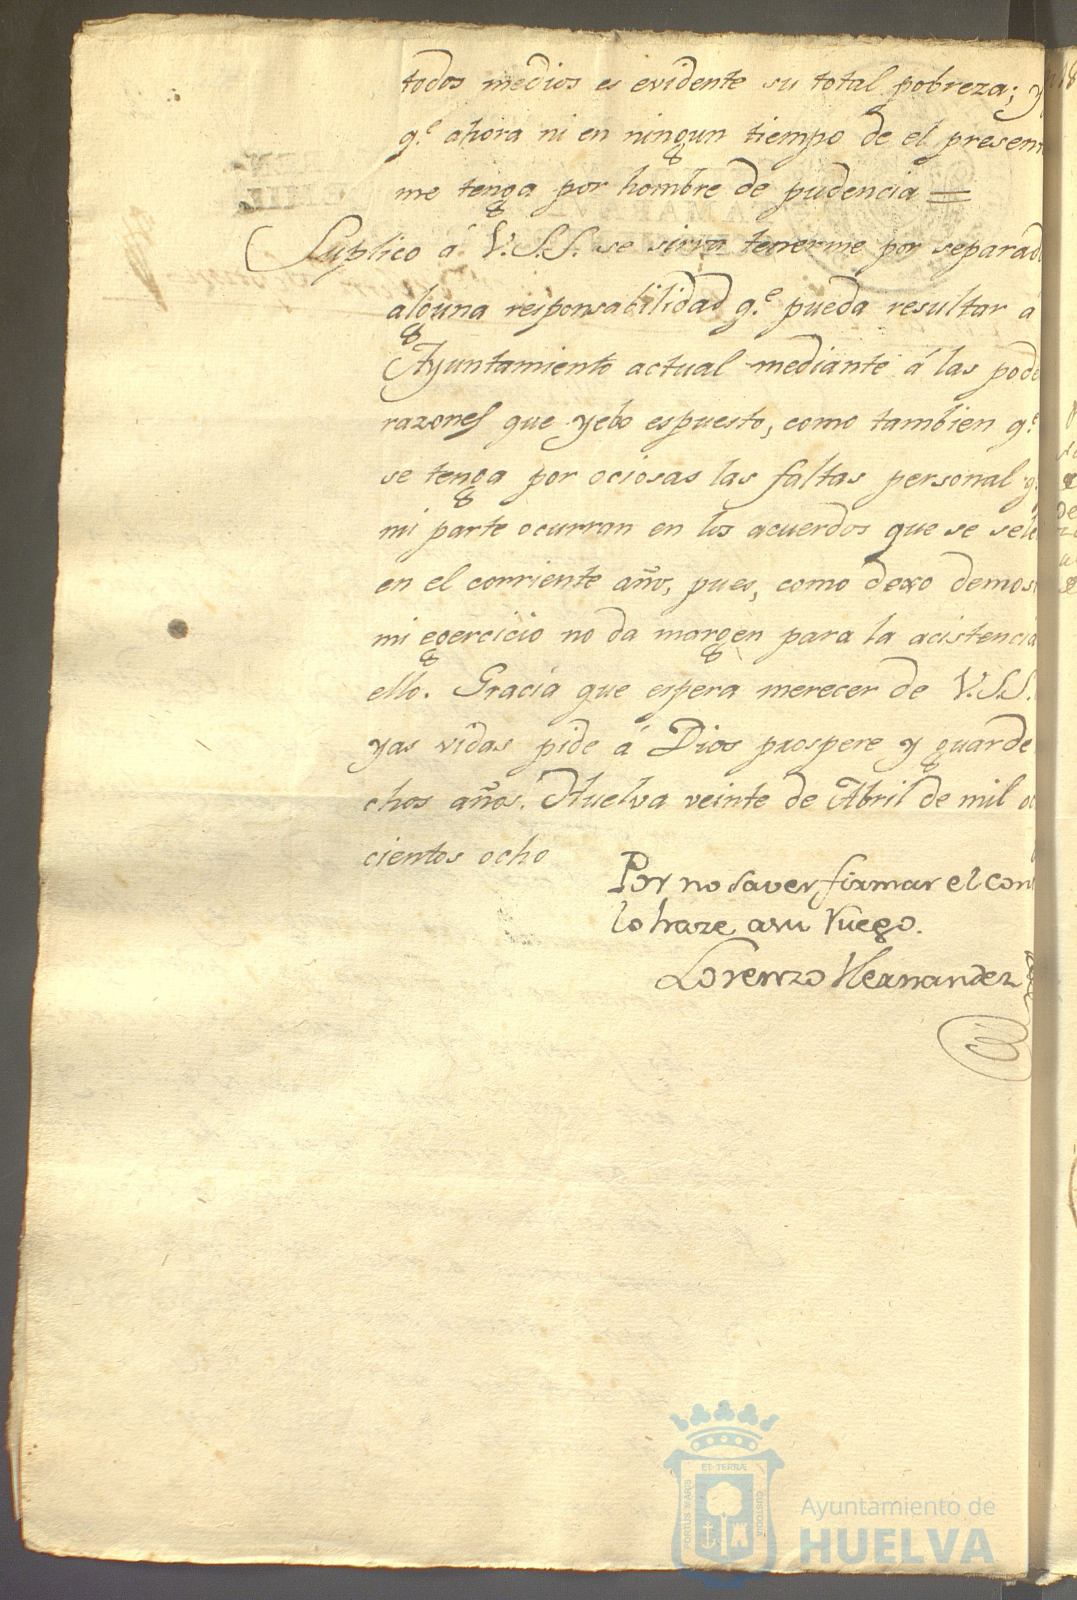 todos medios es evidente su total pobreza; y
q.e ahora ni en ningun tiempo de el presen
me tenga por hombre de pudencia =
Suplico á V.S.S. se sirva tenerme por separad
alguna responsabilidad q.e pueda resultar á
Ayuntamiento actual mediante á las pode
razones que yebo espuesto, como tambien q.e
se tenga por ociosas las faltas personal q.
mi parte ocurran en los acuerdos que se sele
en el corriente año, pues, como dexo demos
mi egercicio no da margen para la acistencia
ello. Gracia que espera merecer de V.S.S.
yas vidas pide á Dios prospere y guarde
chos años. Huelva veinte de Abril de mil o
cientos ocho
Por no saver firmar el con
lo haze asu Ruego.
Lorenzo Hernandez
ET TERRÆ
PORTUS MARIS
CUSTODIA
Ayuntamiento de
HUELVA